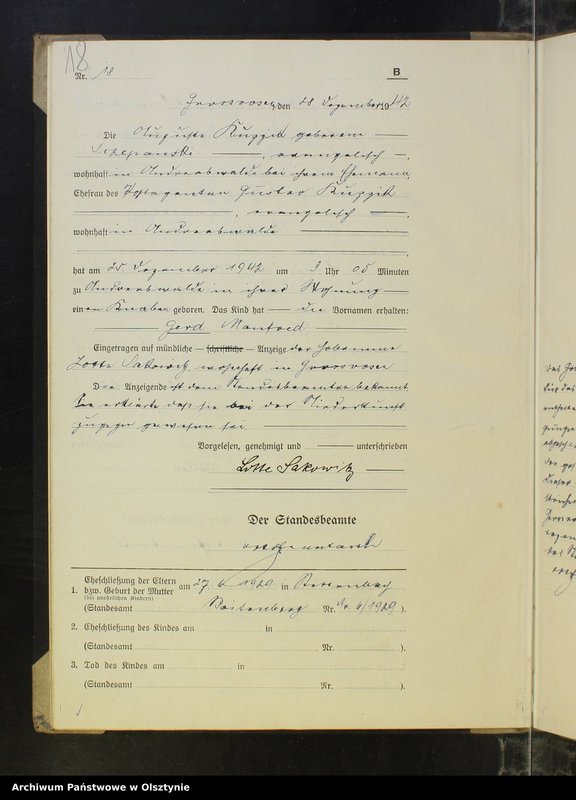 18
Nr. 18
B
Grossrosen, den 28 Dezember 1942
Die Auguste Kuzzik geborene
Sczepanski, evangelisch,
wohnhaft in Andreaswalde bei ihrem Ehemann,
Ehefrau des Gustav Kuzzik
, evangelisch,
wohnhaft in Andreaswalde
hat am 25 Dezember 1942 um 3 Uhr 05 Minuten
zu Andreaswalde in ihrer Wohnung
einen Knaben geboren. Das Kind hat die Vornamen erhalten:
Gerd Manfred
Eingetragen auf mündliche – schriftliche – Anzeige der Hebamme
Lotte Sakowitz, wohnhaft in Grossrosen
Die Anzeigende ist dem Standesbeamten bekannt
Sie erklärte daß sie bei der Niederkunft
zugegen gewesen sei.
Vorgelesen, genehmigt und unterschrieben
Lotte Sakowitz
Der Standesbeamte
1. Eheschließung der Eltern
bzw. Geburt der Mutter
(bei unehelichen Kindern)
am 27. 6 1929 in
(Standesamt Nr. 6/1929).
2. Eheschließung des Kindes am in
(Standesamt Nr. ).
3. Tod des Kindes am in
(Standesamt Nr. ).
Archiwum Państwowe w Olsztynie